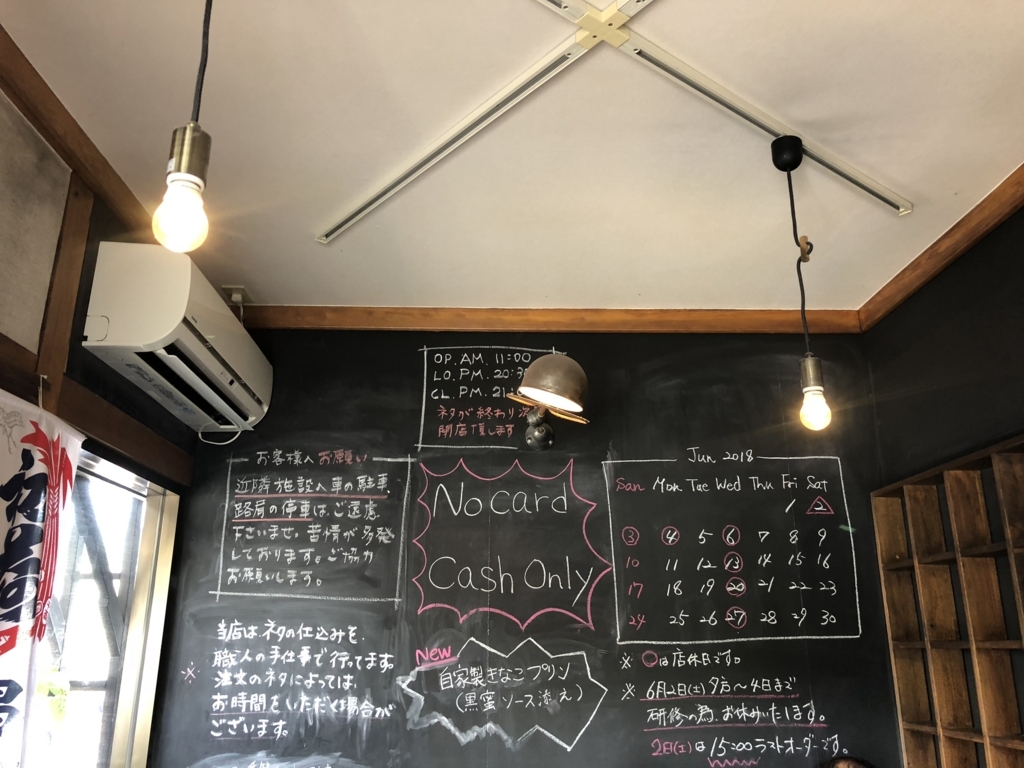 OP. AM. 11:00
LO. PM. 20:3
CL. PM. 21:
ネタが終わり次
閉店致します
お客様へ お願い
近隣施設へ車の駐車、
路肩の停車は、ご遠慮
下さいませ。苦情が多発
しております。ご協力
お願いします。
No card
Cash Only
Jun 2018
Sun Mon Tue Wed Thu Fri Sat
1 2
3 4 5 6 7 8 9
10 11 12 13 14 15 16
17 18 19 20 21 22 23
24 25 26 27 28 29 30
※ ○は店休日です。
※ 6月2日(土)夕方〜4日まで
研修の為、お休みいたします。
2日(土)は15:00ラストオーダーです。
※ 当店はネタの仕込みを、
職人の手仕事で行ってます。
注文のネタによっては、
お時間をいただく場合が
ございます。
New
自家製きなこプリン
(黒蜜ソース添え)